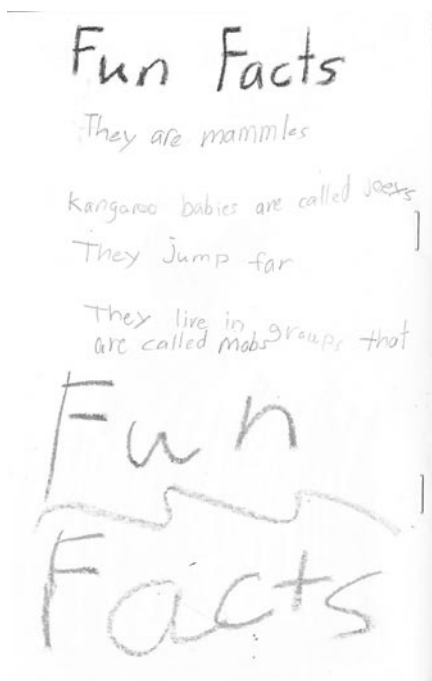 Fun Facts
They are mammles
kangaroo babies are called joeys
They jump far
They live in groups that
are called mobs
Fun
Facts